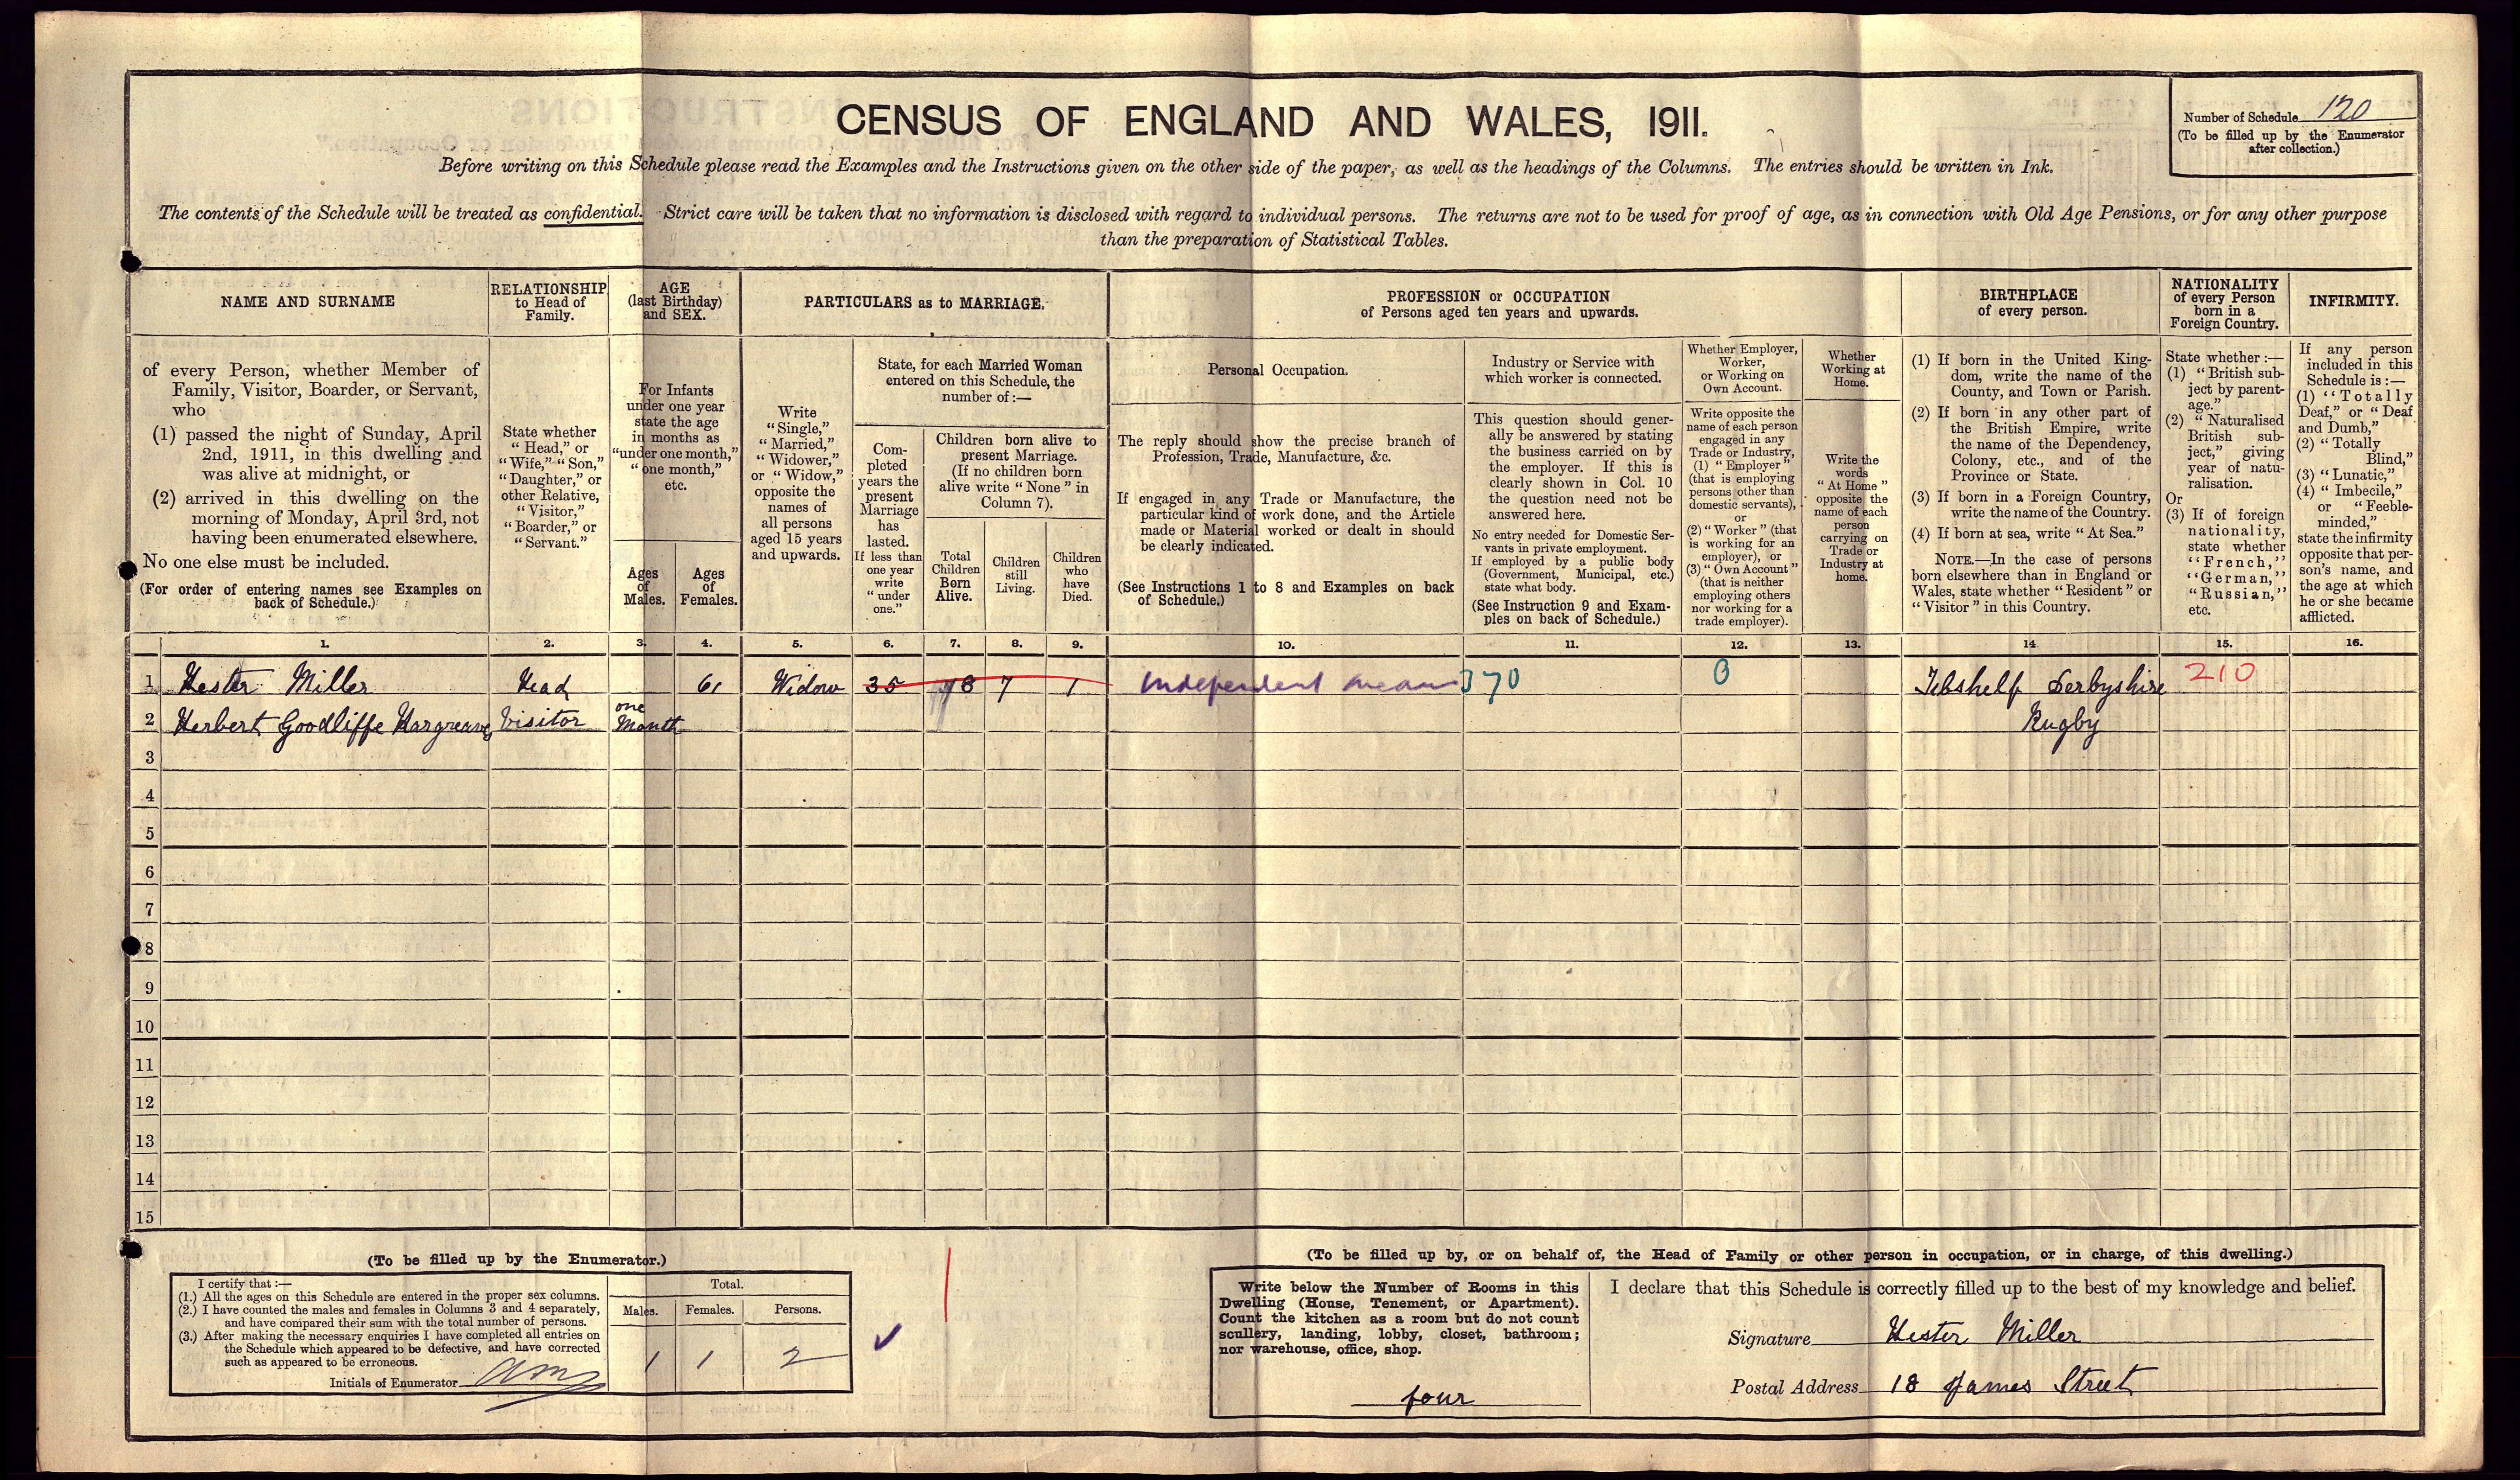 CENSUS OF ENGLAND AND WALES, 1911.
Number of Schedule 120
(To be filled up by the Enumerator
after collection.)
Before writing on this Schedule please read the Examples and the Instructions given on the other side of the paper, as well as the headings of the Columns. The entries should be written in Ink.
The contents of the Schedule will be treated as confidential. Strict care will be taken that no information is disclosed with regard to individual persons. The returns are not to be used for proof of age, as in connection with Old Age Pensions, or for any other purpose
than the preparation of Statistical Tables.
NAME AND SURNAME
of every Person, whether Member of
Family, Visitor, Boarder, or Servant,
who
(1) passed the night of Sunday, April
2nd, 1911, in this dwelling and
was alive at midnight, or
(2) arrived in this dwelling on the
morning of Monday, April 3rd, not
having been enumerated elsewhere.
No one else must be included.
(For order of entering names see Examples on
back of Schedule.)
RELATIONSHIP
to Head of
Family.
State whether
"Head," or
"Wife," "Son,"
"Daughter," or
other Relative,
"Visitor,"
"Boarder," or
"Servant."
AGE
(last Birthday)
and SEX.
For Infants
under one year
state the age
in months as
"under one month,"
"one month,"
etc.
Ages
of
Males.
Ages
of
Females.
PARTICULARS as to MARRIAGE.
Write
"Single,"
"Married,"
"Widower,"
or "Widow,"
opposite the
names of
all persons
aged 15 years
and upwards.
State, for each Married Woman
entered on this Schedule, the
number of:—
Com-
pleted
years the
present
Marriage
has
lasted.
If less than
one year
write
"under
one."
Children born alive to
present Marriage.
(If no children born
alive write "None" in
Column 7).
Total
Children
Born
Alive.
Children
still
Living.
Children
who
have
Died.
PROFESSION or OCCUPATION
of Persons aged ten years and upwards.
Personal Occupation.
The reply should show the precise branch of
Profession, Trade, Manufacture, &c.
If engaged in any Trade or Manufacture, the
particular kind of work done, and the Article
made or Material worked or dealt in should
be clearly indicated.
(See Instructions 1 to 8 and Examples on back
of Schedule.)
Industry or Service with
which worker is connected.
This question should gener-
ally be answered by stating
the business carried on by
the employer. If this is
clearly shown in Col. 10
the question need not be
answered here.
No entry needed for Domestic Ser-
vants in private employment.
If employed by a public body
(Government, Municipal, etc.)
state what body.
(See Instruction 9 and Exam-
ples on back of Schedule.)
Whether Employer,
Worker,
or Working on
Own Account.
Write opposite the
name of each person
engaged in any
Trade or Industry,
(1) "Employer"
(that is employing
persons other than
domestic servants),
or
(2) "Worker" (that
is working for an
employer), or
(3) "Own Account"
(that is neither
employing others
nor working for a
trade employer).
Whether
Working at
Home.
Write the
words
"At Home"
opposite the
name of each
person
carrying on
Trade or
Industry at
home.
BIRTHPLACE
of every person.
(1) If born in the United King-
dom, write the name of the
County, and Town or Parish.
(2) If born in any other part of
the British Empire, write
the name of the Dependency,
Colony, etc., and of the
Province or State.
(3) If born in a Foreign Country,
write the name of the Country.
(4) If born at sea, write "At Sea."
NOTE.—In the case of persons
born elsewhere than in England or
Wales, state whether "Resident" or
"Visitor" in this Country.
NATIONALITY
of every Person
born in a
Foreign Country.
State whether:—
(1) "British sub-
ject by parent-
age."
(2) "Naturalised
British sub-
ject," giving
year of natu-
ralisation.
Or
(3) If of foreign
nationality,
state whether
"French,"
"German,"
"Russian,"
etc.
INFIRMITY.
If any person
included in this
Schedule is:—
(1) "Totally
Deaf," or "Deaf
and Dumb,"
(2) "Totally
Blind,"
(3) "Lunatic,"
(4) "Imbecile,"
or "Feeble-
minded,"
state the infirmity
opposite that per-
son's name, and
the age at which
he or she became
afflicted.
1. 2. 3. 4. 5. 6. 7. 8. 9. 10. 11. 12. 13. 14 15. 16.
1 Hester Miller Head 61 Widow 35 8 7 1 Independent means 370 0 Tibshelf Derbyshire 210
2 Herbert Goodliffe Hargreaves Visitor one Month Rugby
3
4
5
6
7
8
9
10
11
12
13
14
15
(To be filled up by the Enumerator.)
I certify that:—
(1.) All the ages on this Schedule are entered in the proper sex columns.
(2.) I have counted the males and females in Columns 3 and 4 separately,
and have compared their sum with the total number of persons.
(3.) After making the necessary enquiries I have completed all entries on
the Schedule which appeared to be defective, and have corrected
such as appeared to be erroneous.
Initials of Enumerator
Total.
Males. Females. Persons.
1 1 2
(To be filled up by, or on behalf of, the Head of Family or other person in occupation, or in charge, of this dwelling.)
Write below the Number of Rooms in this
Dwelling (House, Tenement, or Apartment).
Count the kitchen as a room but do not count
scullery, landing, lobby, closet, bathroom;
nor warehouse, office, shop.
four
I declare that this Schedule is correctly filled up to the best of my knowledge and belief.
Signature Hester Miller
Postal Address 18 James Street